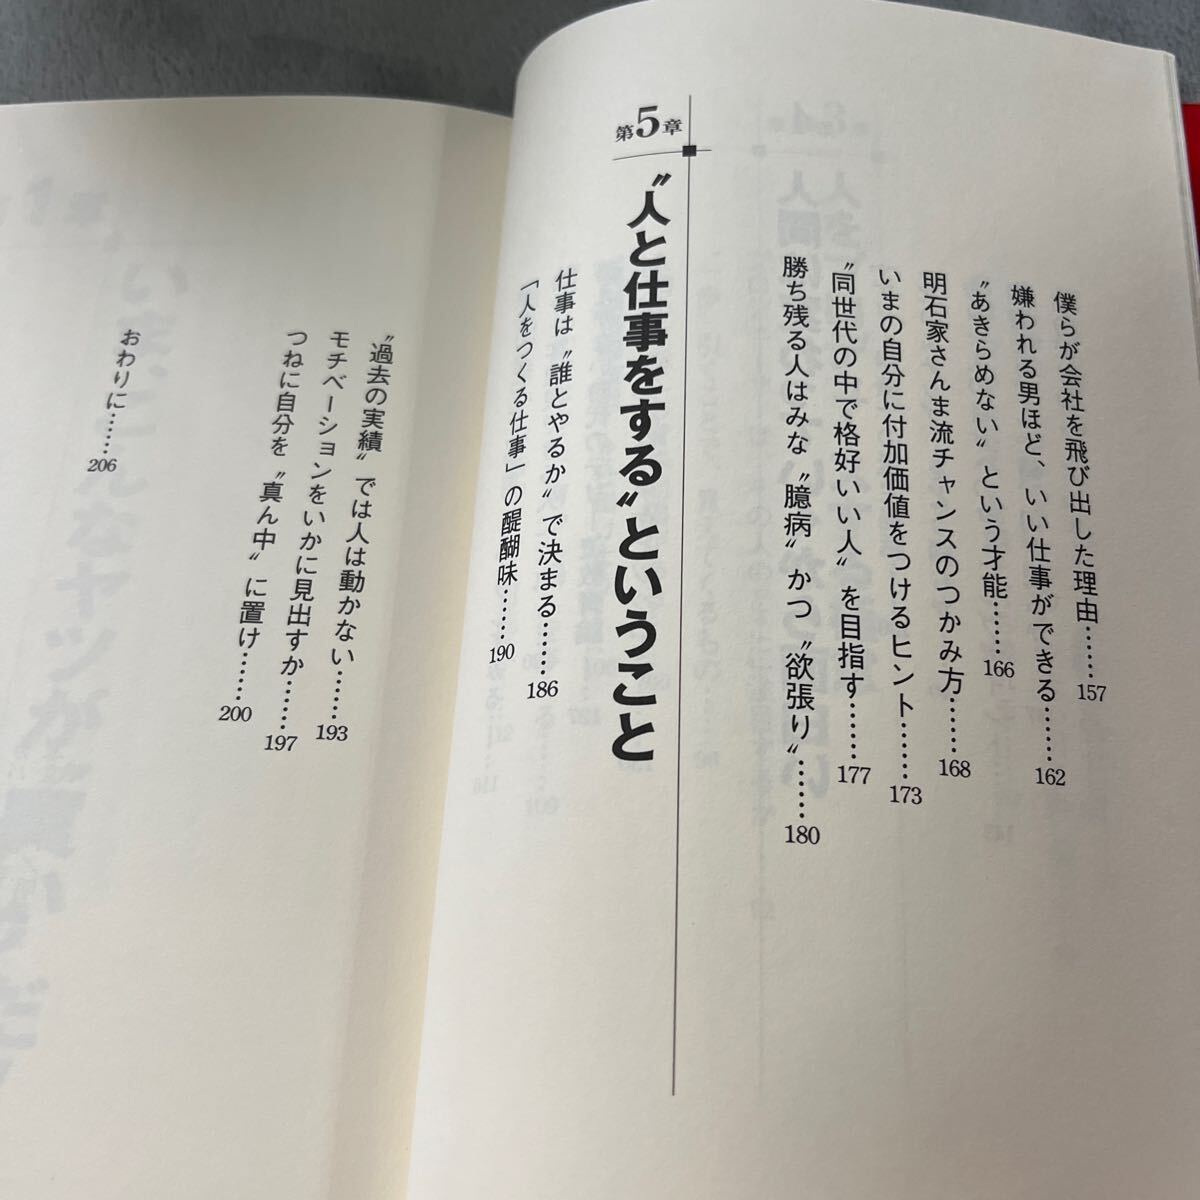 僕らが会社を飛び出した理由……157
嫌われる男ほど、いい仕事ができる……162
〝あきらめない〟という才能……166
明石家さんま流チャンスのつかみ方……168
いまの自分に付加価値をつけるヒント……173
〝同世代の中で格好いい人〟を目指す……177
勝ち残る人はみな〝臆病〟かつ〝欲張り〟……180
第5章
〝人と仕事をする〟ということ
仕事は〝誰とやるか〟で決まる……186
「人をつくる仕事」の醍醐味……190
〝過去の実績〟では人は動かない……193
モチベーションをいかに見出すか……197
つねに自分を〝真ん中〟に置け……200
おわりに……206